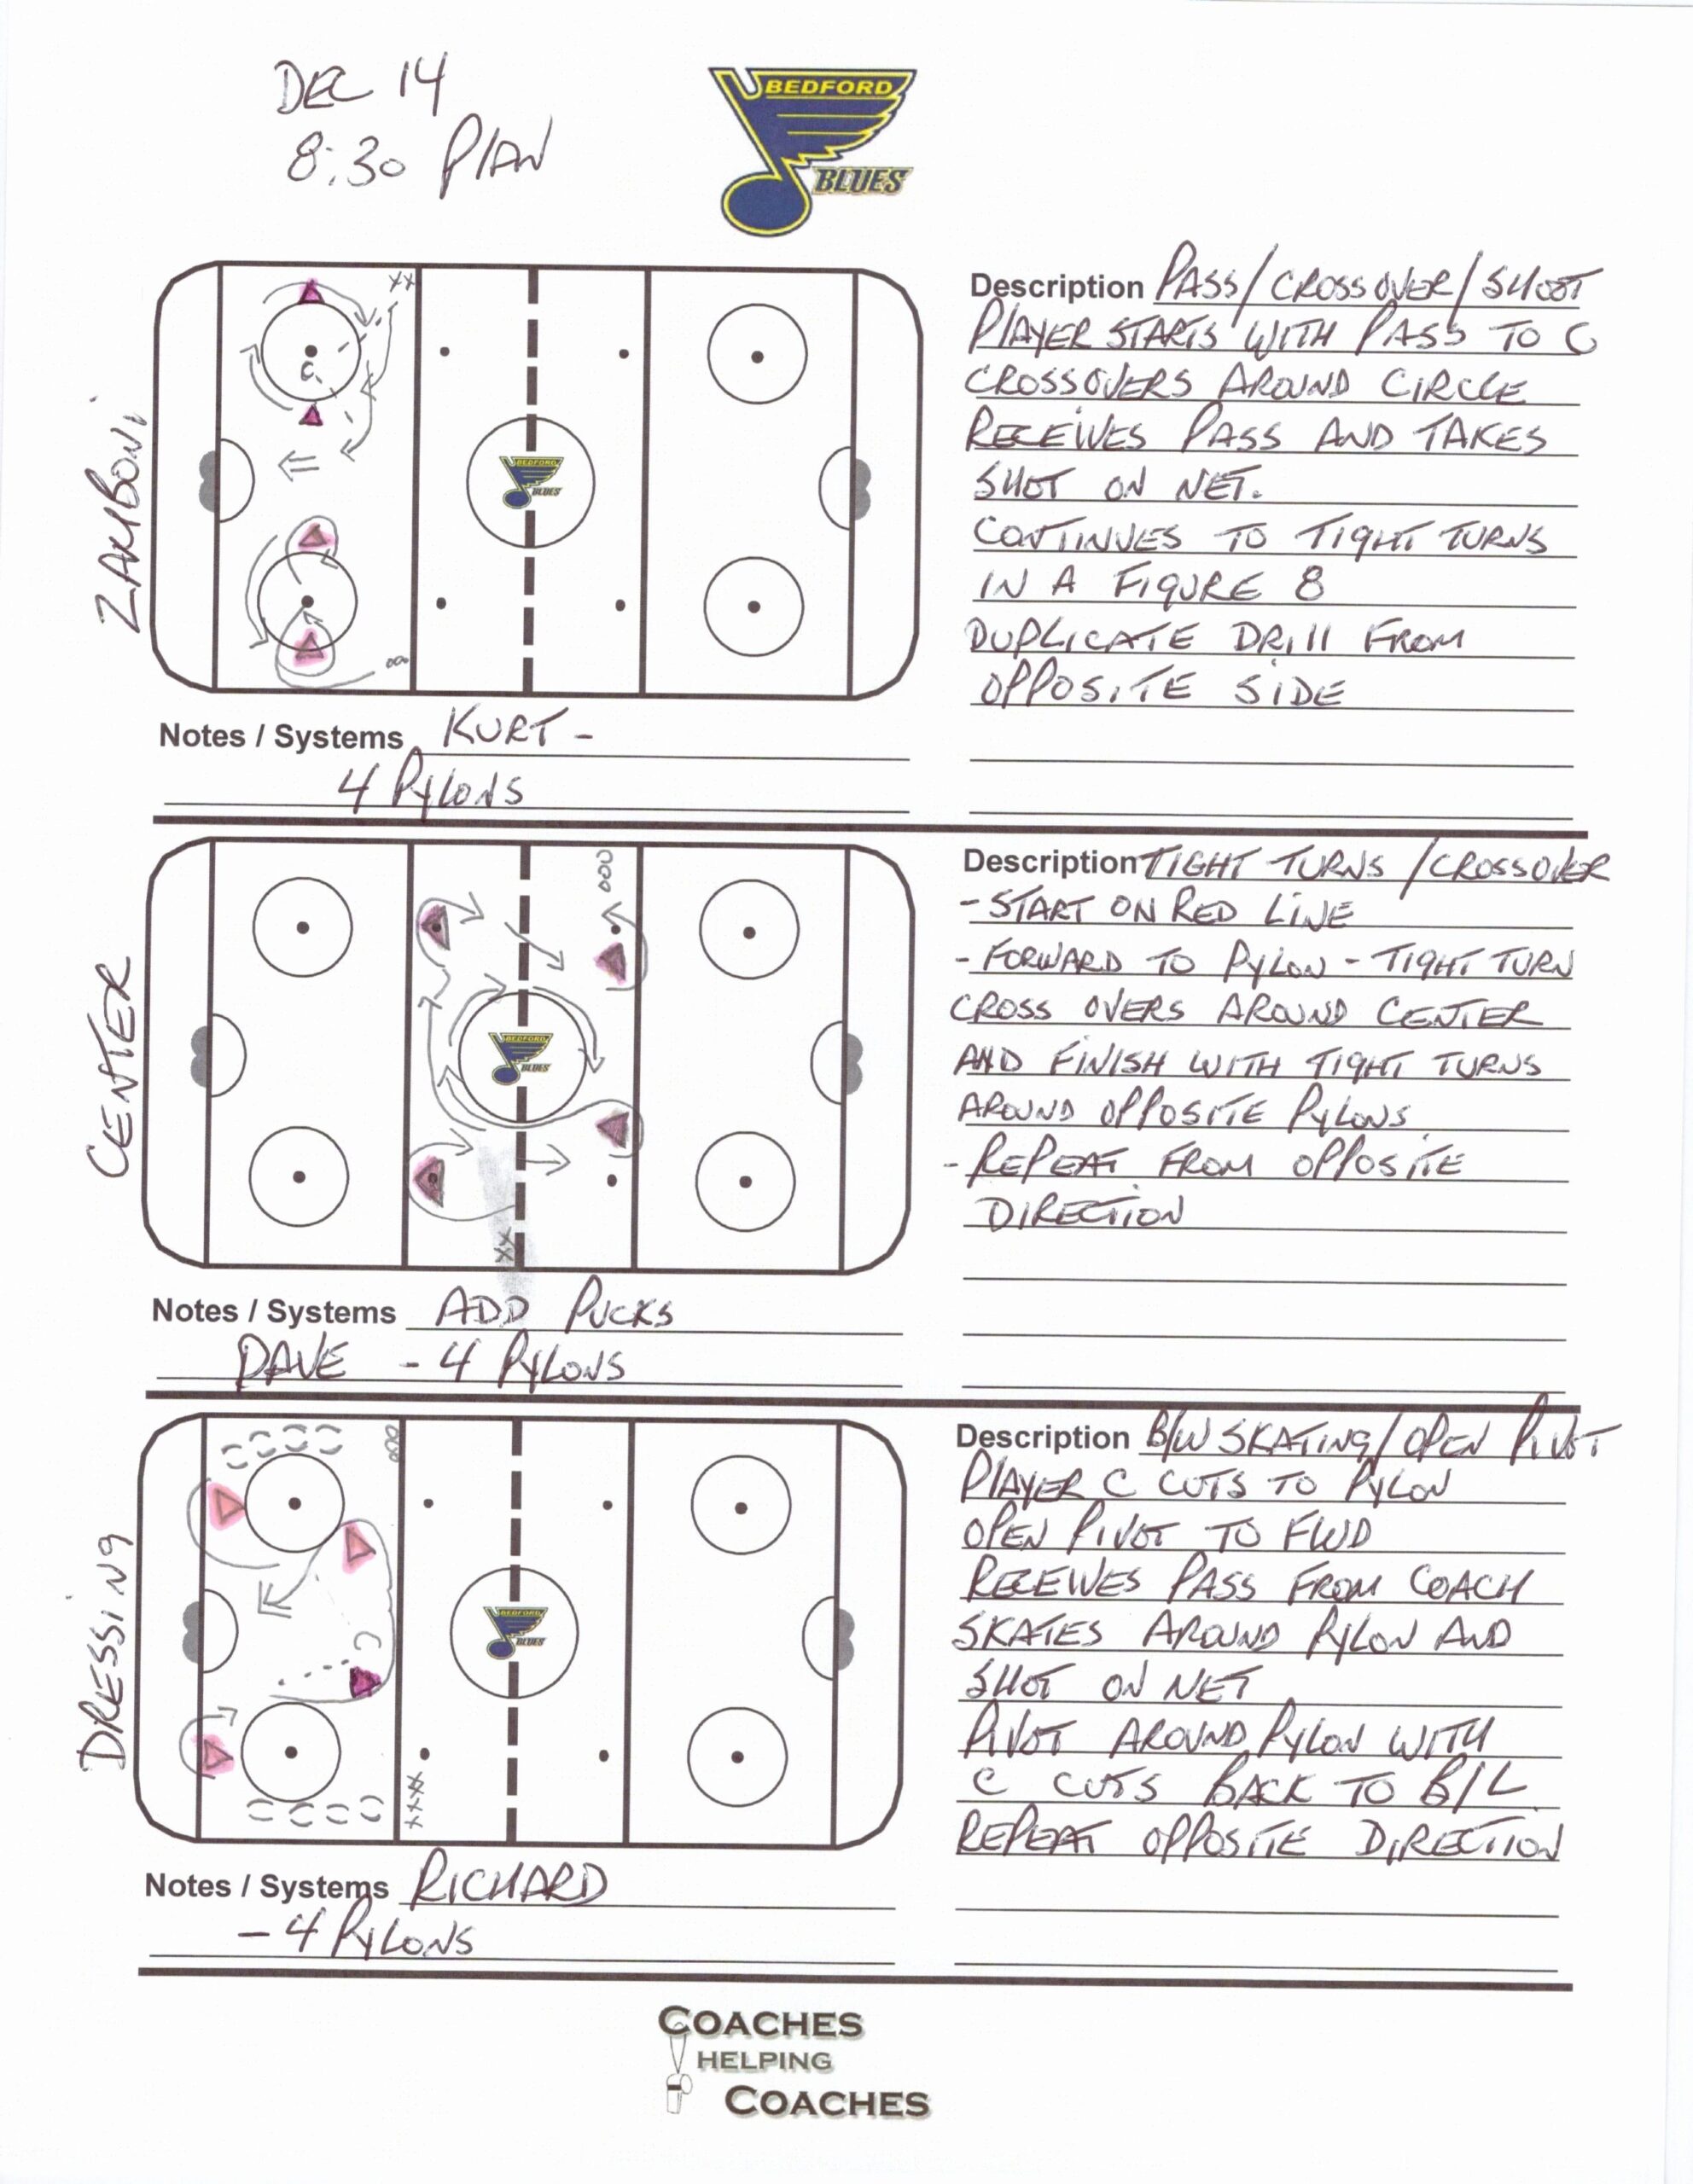 DEC 14
8:30 PLAN
BEDFORD
BLUES
ZAMBONI
XX
C
BEDFORD
BLUES
ooo
Description PASS/CROSSOVER/SHOOT
PLAYER STARTS WITH PASS TO C
CROSSOVERS AROUND CIRCLE
RECEIVES PASS AND TAKES
SHOT ON NET.
CONTINUES TO TIGHT TURNS
IN A FIGURE 8
DUPLICATE DRILL FROM
OPPOSITE SIDE
Notes / Systems KURT -
4 PYLONS
CENTER
ooo
BEDFORD
BLUES
XX
Description TIGHT TURNS / CROSSOVER
- START ON RED LINE
- FORWARD TO PYLON - TIGHT TURN
CROSS OVERS AROUND CENTER
AND FINISH WITH TIGHT TURNS
AROUND OPPOSITE PYLONS.
- REPEAT FROM OPPOSITE
DIRECTION
Notes / Systems ADD PUCKS
DAVE - 4 PYLONS
DRESSING
ooo
C
BEDFORD
BLUES
XXXX
Description B/W SKATING/OPEN PIVOT
PLAYER C CUTS TO PYLON
OPEN PIVOT TO FWD
RECEIVES PASS FROM COACH
SKATES AROUND PYLON AND
SHOT ON NET
PIVOT AROUND PYLON WITH
C CUTS BACK TO B/L
REPEAT OPPOSITE DIRECTION
Notes / Systems RICHARD
- 4 PYLONS
COACHES
HELPING
COACHES